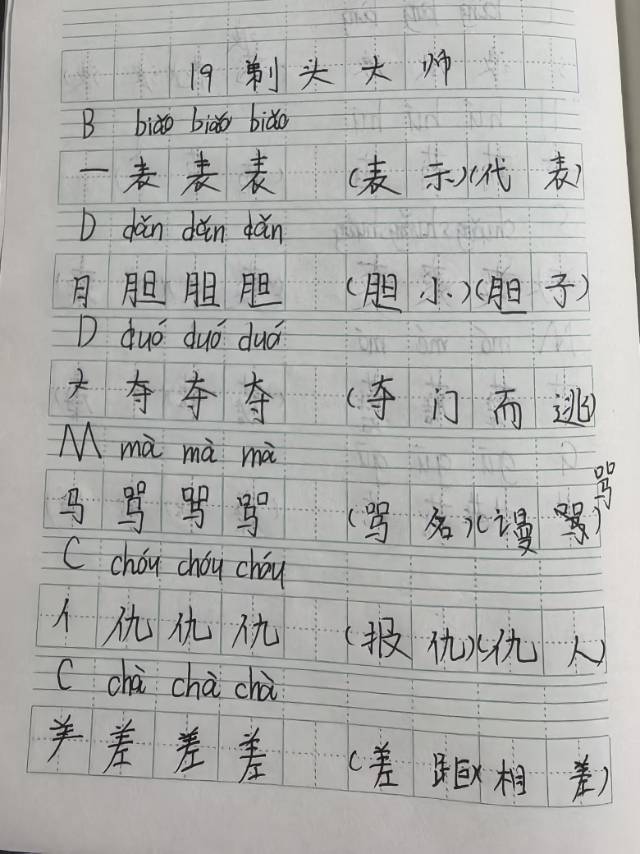 19 剃头大师
B biǎo biǎo biǎo
一 表 表 表 (表示)(代表)
D dǎn dǎn dǎn
月 胆 胆 胆 (胆小)(胆子)
D duó duó duó
大 夺 夺 夺 (夺门而逃)
M mà mà mà
马 骂 骂 骂 (骂名)(谩骂) 骂
C chóu chóu chóu
亻 仇 仇 仇 (报仇)(仇人)
C chà chà chà
羊 差 差 差 (差距)(相差)